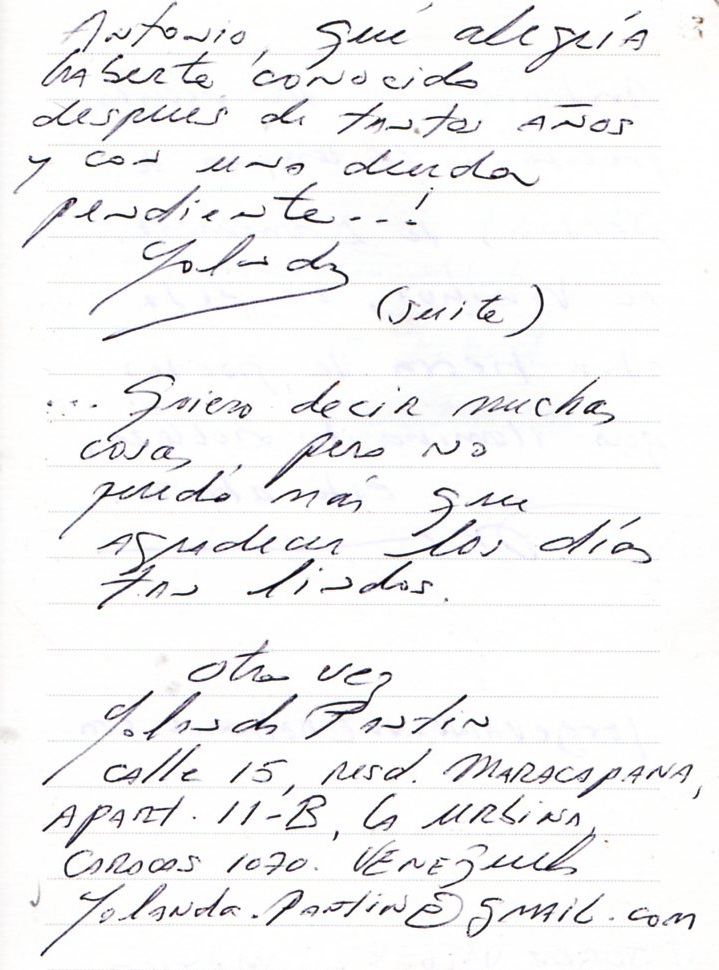 Antonio, qué alegría
haberte conocido
despues de tantos años
y con una deuda
pendiente...!
Yolanda
(suite)
... Quiero decir muchas
cosas, pero no
puedo más que
agradecer los días
tan lindos.
otra vez
Yolanda Pantin
calle 15, resd. MARACAPANA,
APART. 11-B, La URbina,
CARACAS 1070. VENEZuela
Yolanda.Pantin@gmail.com